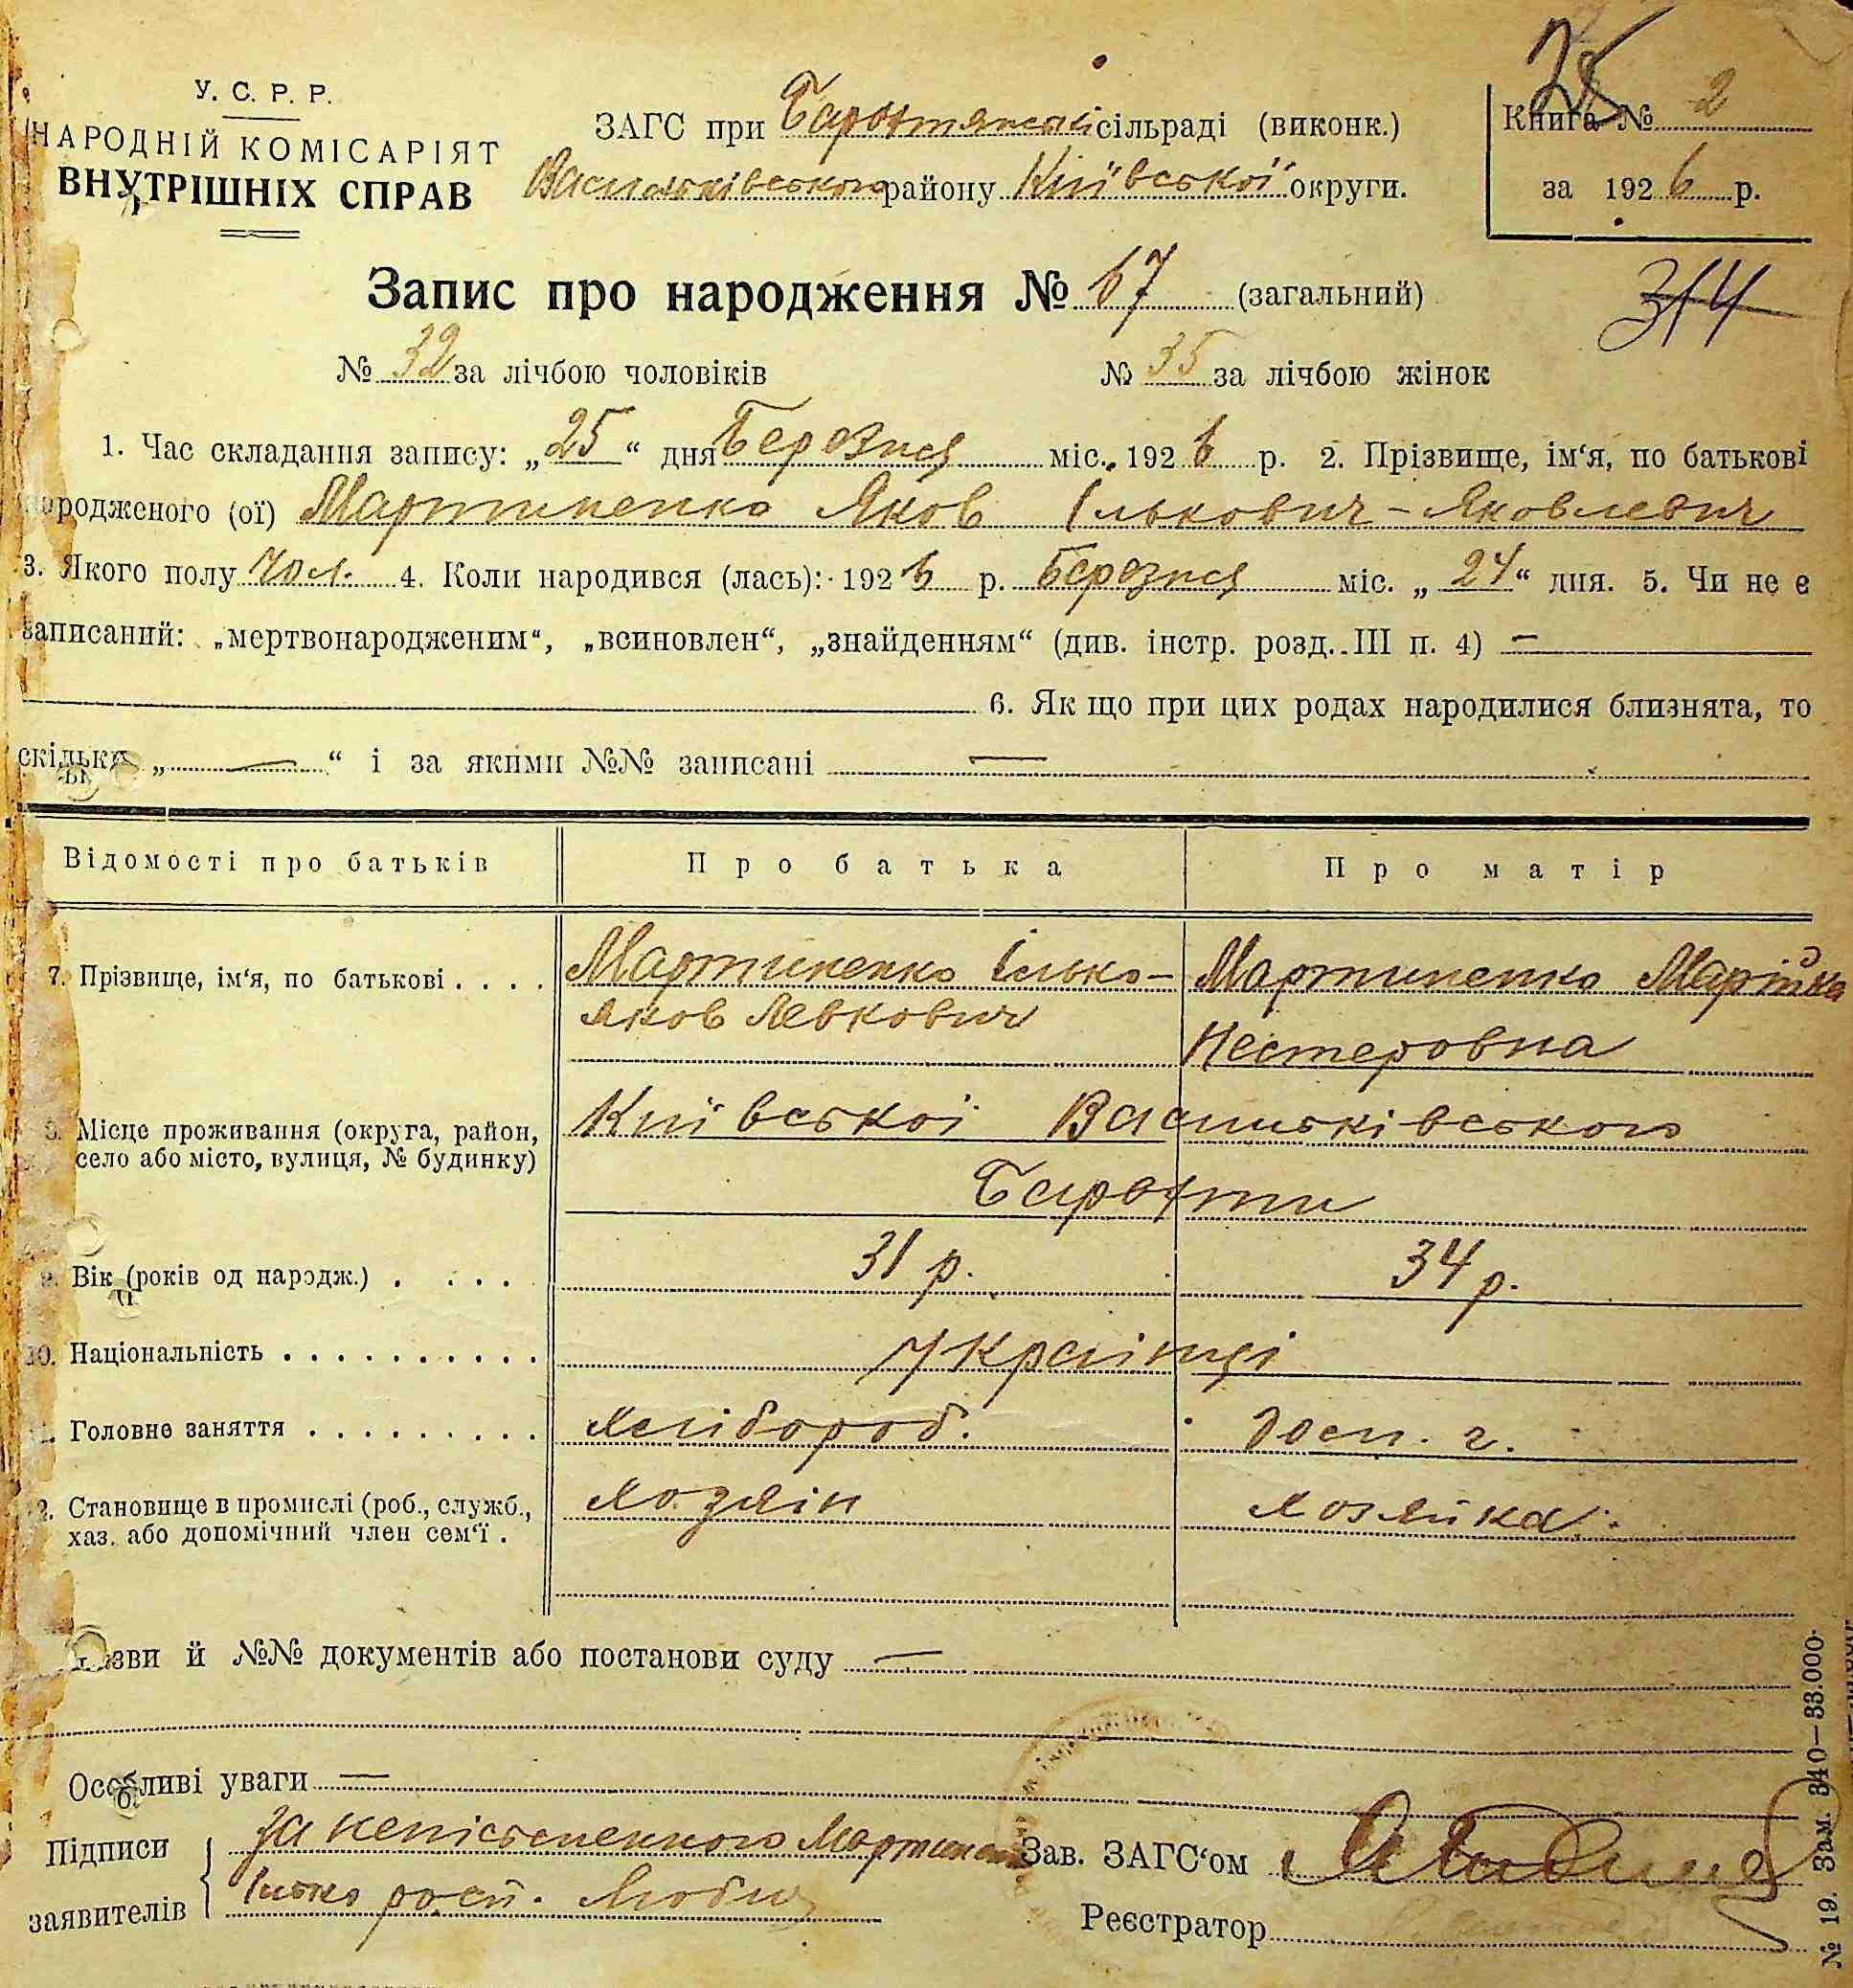 У. С. Р. Р.
НАРОДНІЙ КОМІСАРІЯТ
ВНУТРІШНІХ СПРАВ
ЗАГС при Барахтянській сільраді (виконк.)
Васильківського району Київської округи.
Книга № 2
за 1926 р.
Запис про народження № 67 (загальний)
314
№ 32 за лічбою чоловіків № 35 за лічбою жінок
1. Час складання запису: „25“ дня Березня міс. 1926 р. 2. Прізвище, ім‘я, по батькові
народженого (ої) Мартиненко Яков Ількович-Яковлевич
3. Якого полу чол. 4. Коли народився (лась): 1926 р. Березня міс. „24“ дня. 5. Чи не є
записаний: „мертвонародженим“, „всиновлен“, „знайденням“ (див. інстр. розд. III п. 4) —
6. Як що при цих родах народилися близнята, то
скільки „—“ і за якими №№ записані —
Відомості про батьків Про батька Про матір
7. Прізвище, ім‘я, по батькові . . . . Мартиненко Ілько- Мартиненко Марійка
Яков Левкович Нестеровна
8. Місце проживання (округа, район, село або місто, вулиця, № будинку) Київської Васильківського
Барахти
9. Вік (років од народж.) . . . . 31 р. 34 р.
10. Національність . . . . . . . . . . Українці
11. Головне заняття . . . . . . . . . Хлібороб. Дом. г.
12. Становище в промислі (роб., служб., хаз. або допомічний член сем‘ї . Хозяін Хозяйка
Назви й №№ документів або постанови суду —
Особливі уваги —
Підписи заявителів За неписьменного Мартиненка
Ілько росп.
Зав. ЗАГС‘ом
Реєстратор
№ 19. Зам. 340—33.000.